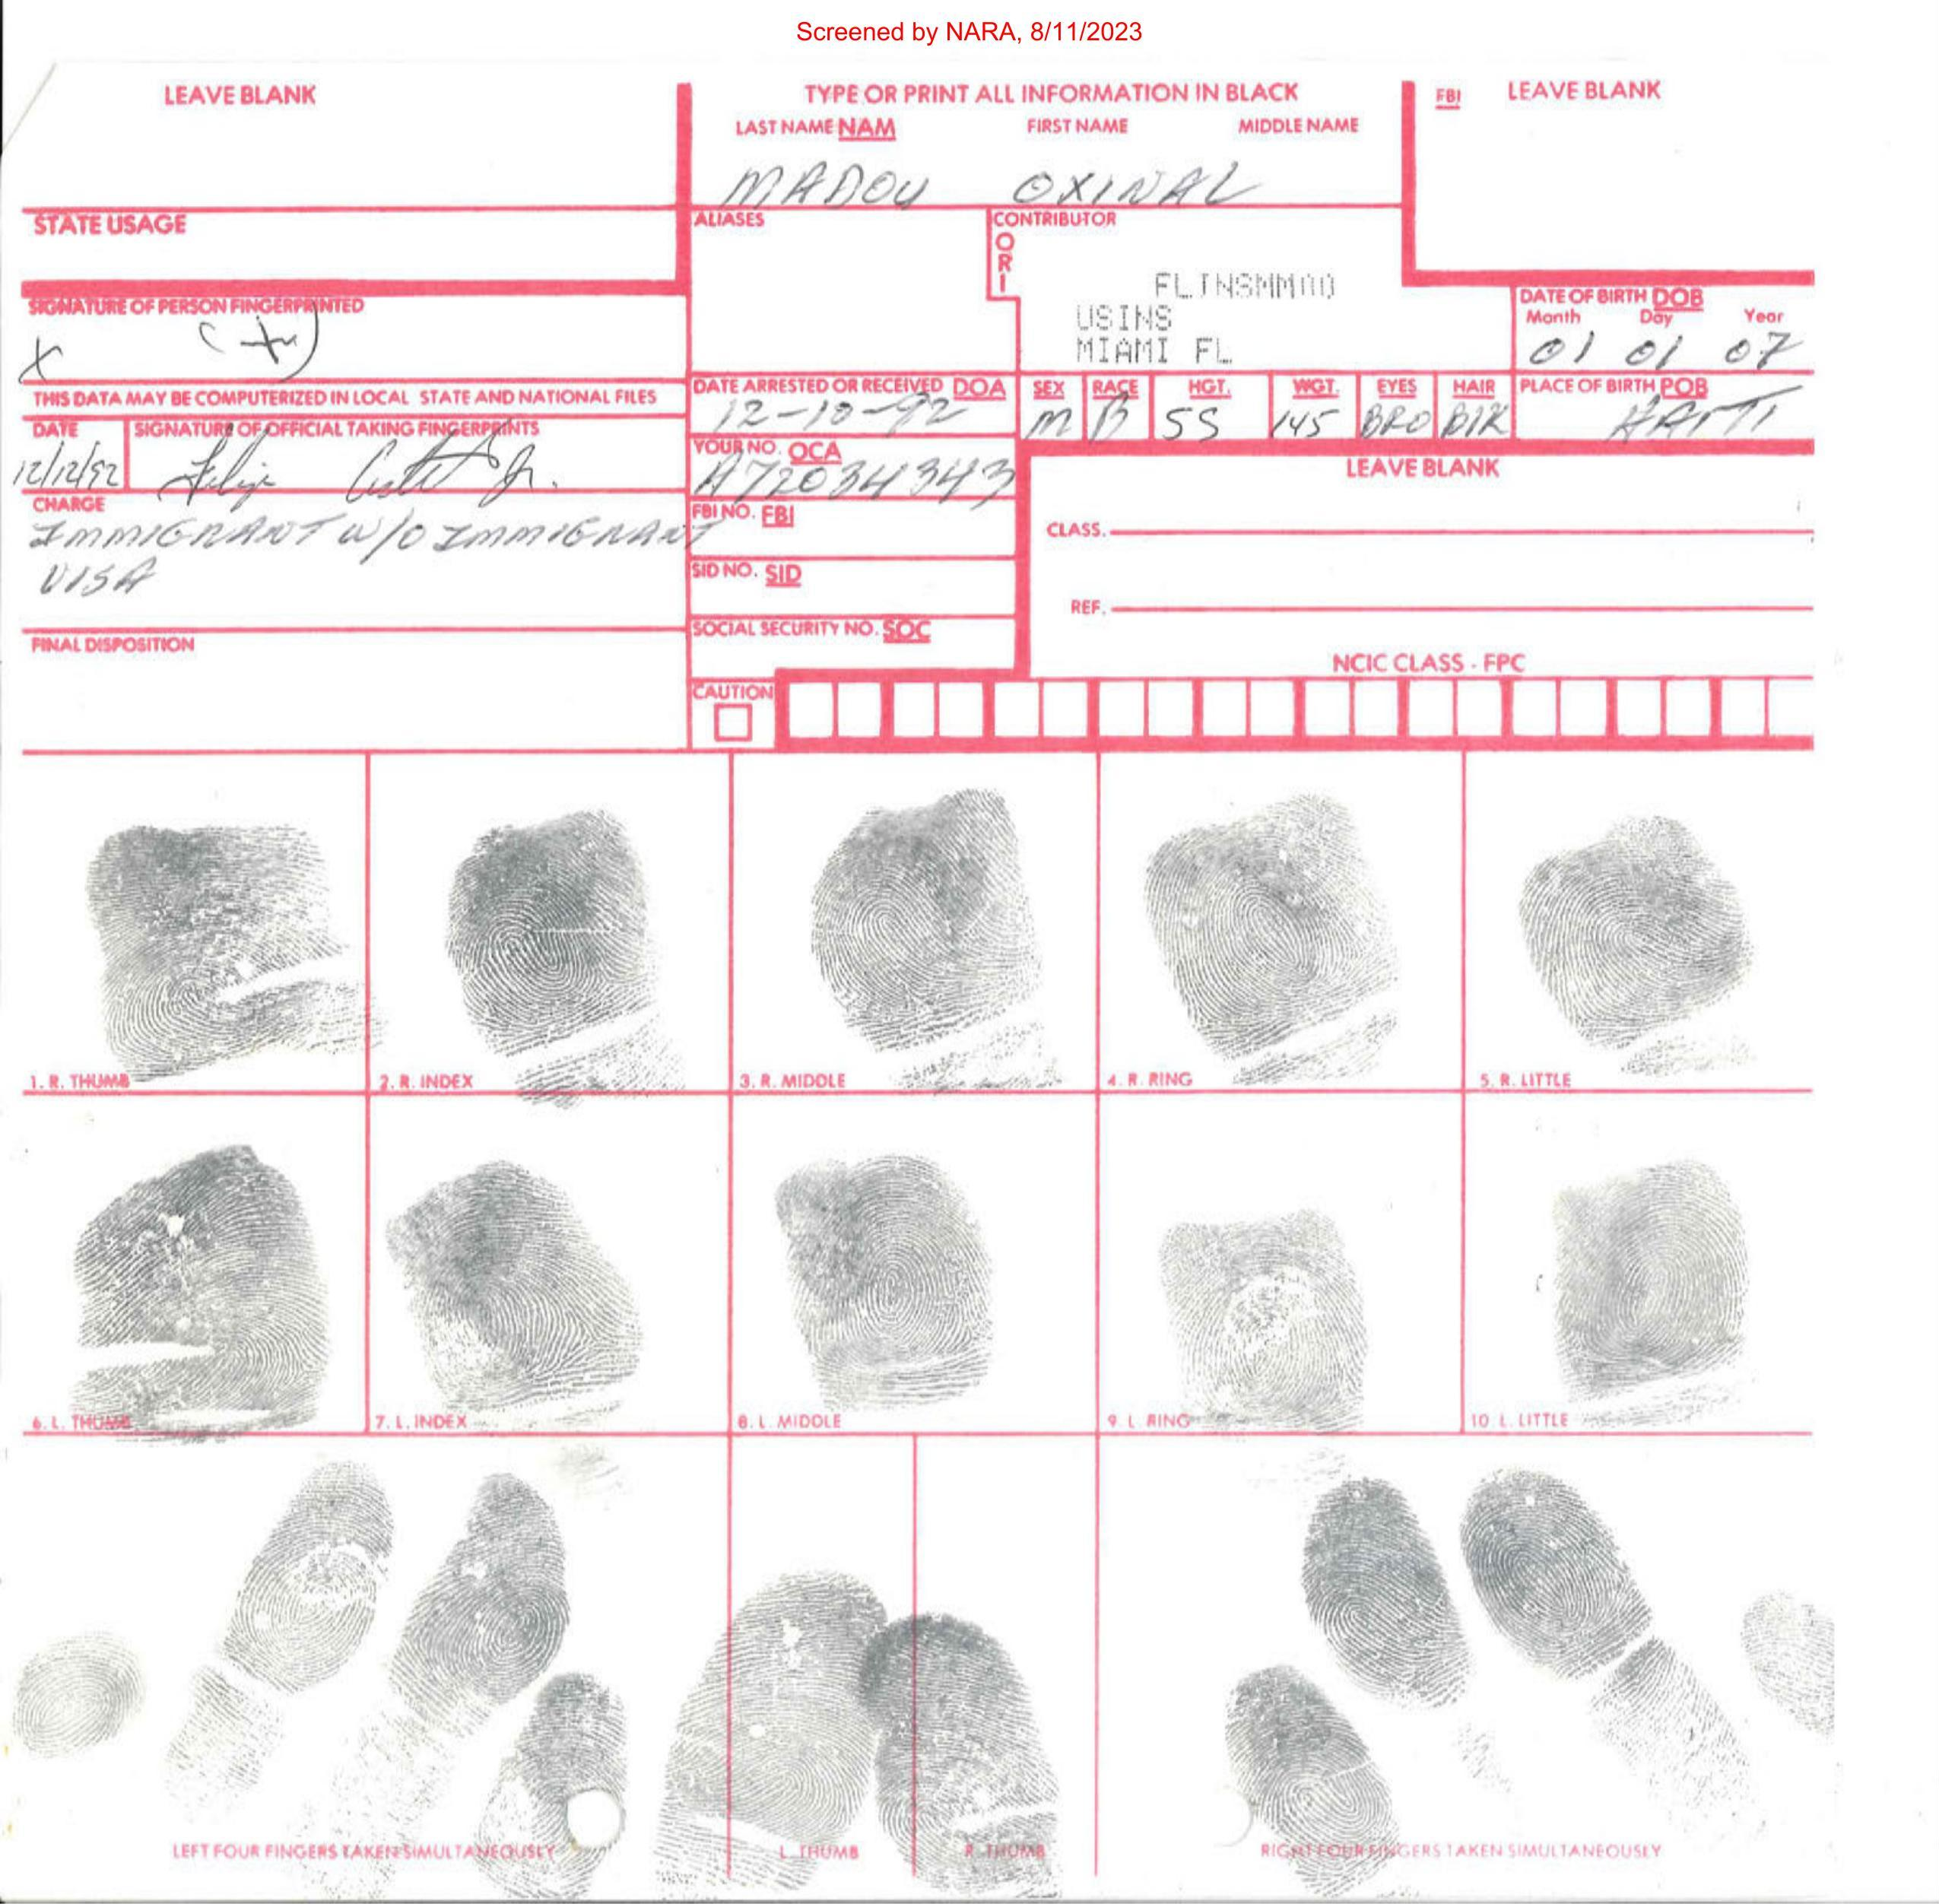 Screened by NARA, 8/11/2023
LEAVE BLANK
TYPE OR PRINT ALL INFORMATION IN BLACK
FBI LEAVE BLANK
LAST NAME NAM FIRST NAME MIDDLE NAME
MADOU OXINAL
STATE USAGE
ALIASES
CONTRIBUTOR
ORI
FLINSMM00
USINS
MIAMI FL
SIGNATURE OF PERSON FINGERPRINTED
X (+)
DATE OF BIRTH DOB
Month Day Year
01 01 07
THIS DATA MAY BE COMPUTERIZED IN LOCAL STATE AND NATIONAL FILES
DATE ARRESTED OR RECEIVED DOA
12-10-92
SEX RACE HGT. WGT. EYES HAIR PLACE OF BIRTH POB
M B 55 145 BRO BLK HAITI
DATE SIGNATURE OF OFFICIAL TAKING FINGERPRINTS
12/12/92 Jr.
YOUR NO. OCA
A72034343
LEAVE BLANK
CHARGE
IMMIGRANT W/O IMMIGRANT
VISA
FBI NO. FBI
CLASS.
SID NO. SID
REF.
SOCIAL SECURITY NO. SOC
FINAL DISPOSITION
NCIC CLASS - FPC
CAUTION
1. R. THUMB 2. R. INDEX 3. R. MIDDLE 4. R. RING 5. R. LITTLE
6. L. THUMB 7. L. INDEX 8. L. MIDDLE 9. L. RING 10 L. LITTLE
LEFT FOUR FINGERS TAKEN SIMULTANEOUSLY L. THUMB R. THUMB RIGHT FOUR FINGERS TAKEN SIMULTANEOUSLY